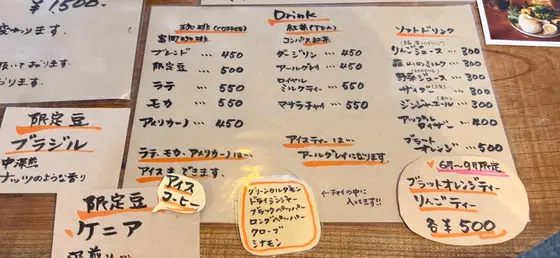 ¥1500.
Drink
珈琲 (COFFEE)
富岡珈琲
ブレンド … 450
限定豆 … 500
ラテ … 550
モカ … 550
アメリカーノ … 450
ラテ、モカ、アメリカーノは…
アイスもできます。
アイス
コーヒー
紅茶 (TEA)
コンパス紅茶
ダージリン … 450
アールグレイ … 450
ロイヤル
ミルクティー … 550
マサラチャイ … 550
アイスティーは…
アールグレイになります。
グリーンカルダモン
ドライジンジャー
ブラックペッパー
ロングペッパー
クローブ
シナモン
←チャイの中に
入ってます!!
ソフトドリンク
りんごジュース … 300
森のリンゴミルク … 300
野菜ジュース … 300
サイダー … 300
ジンジャーエール … 300
アップル
タイザー … 400
ブラッド
オレンジ … 500
6月〜9月限定
ブラッドオレンジティー
りんごティー
各¥500
限定豆
ブラジル
中深煎
ナッツのような香り
限定豆
ケニア